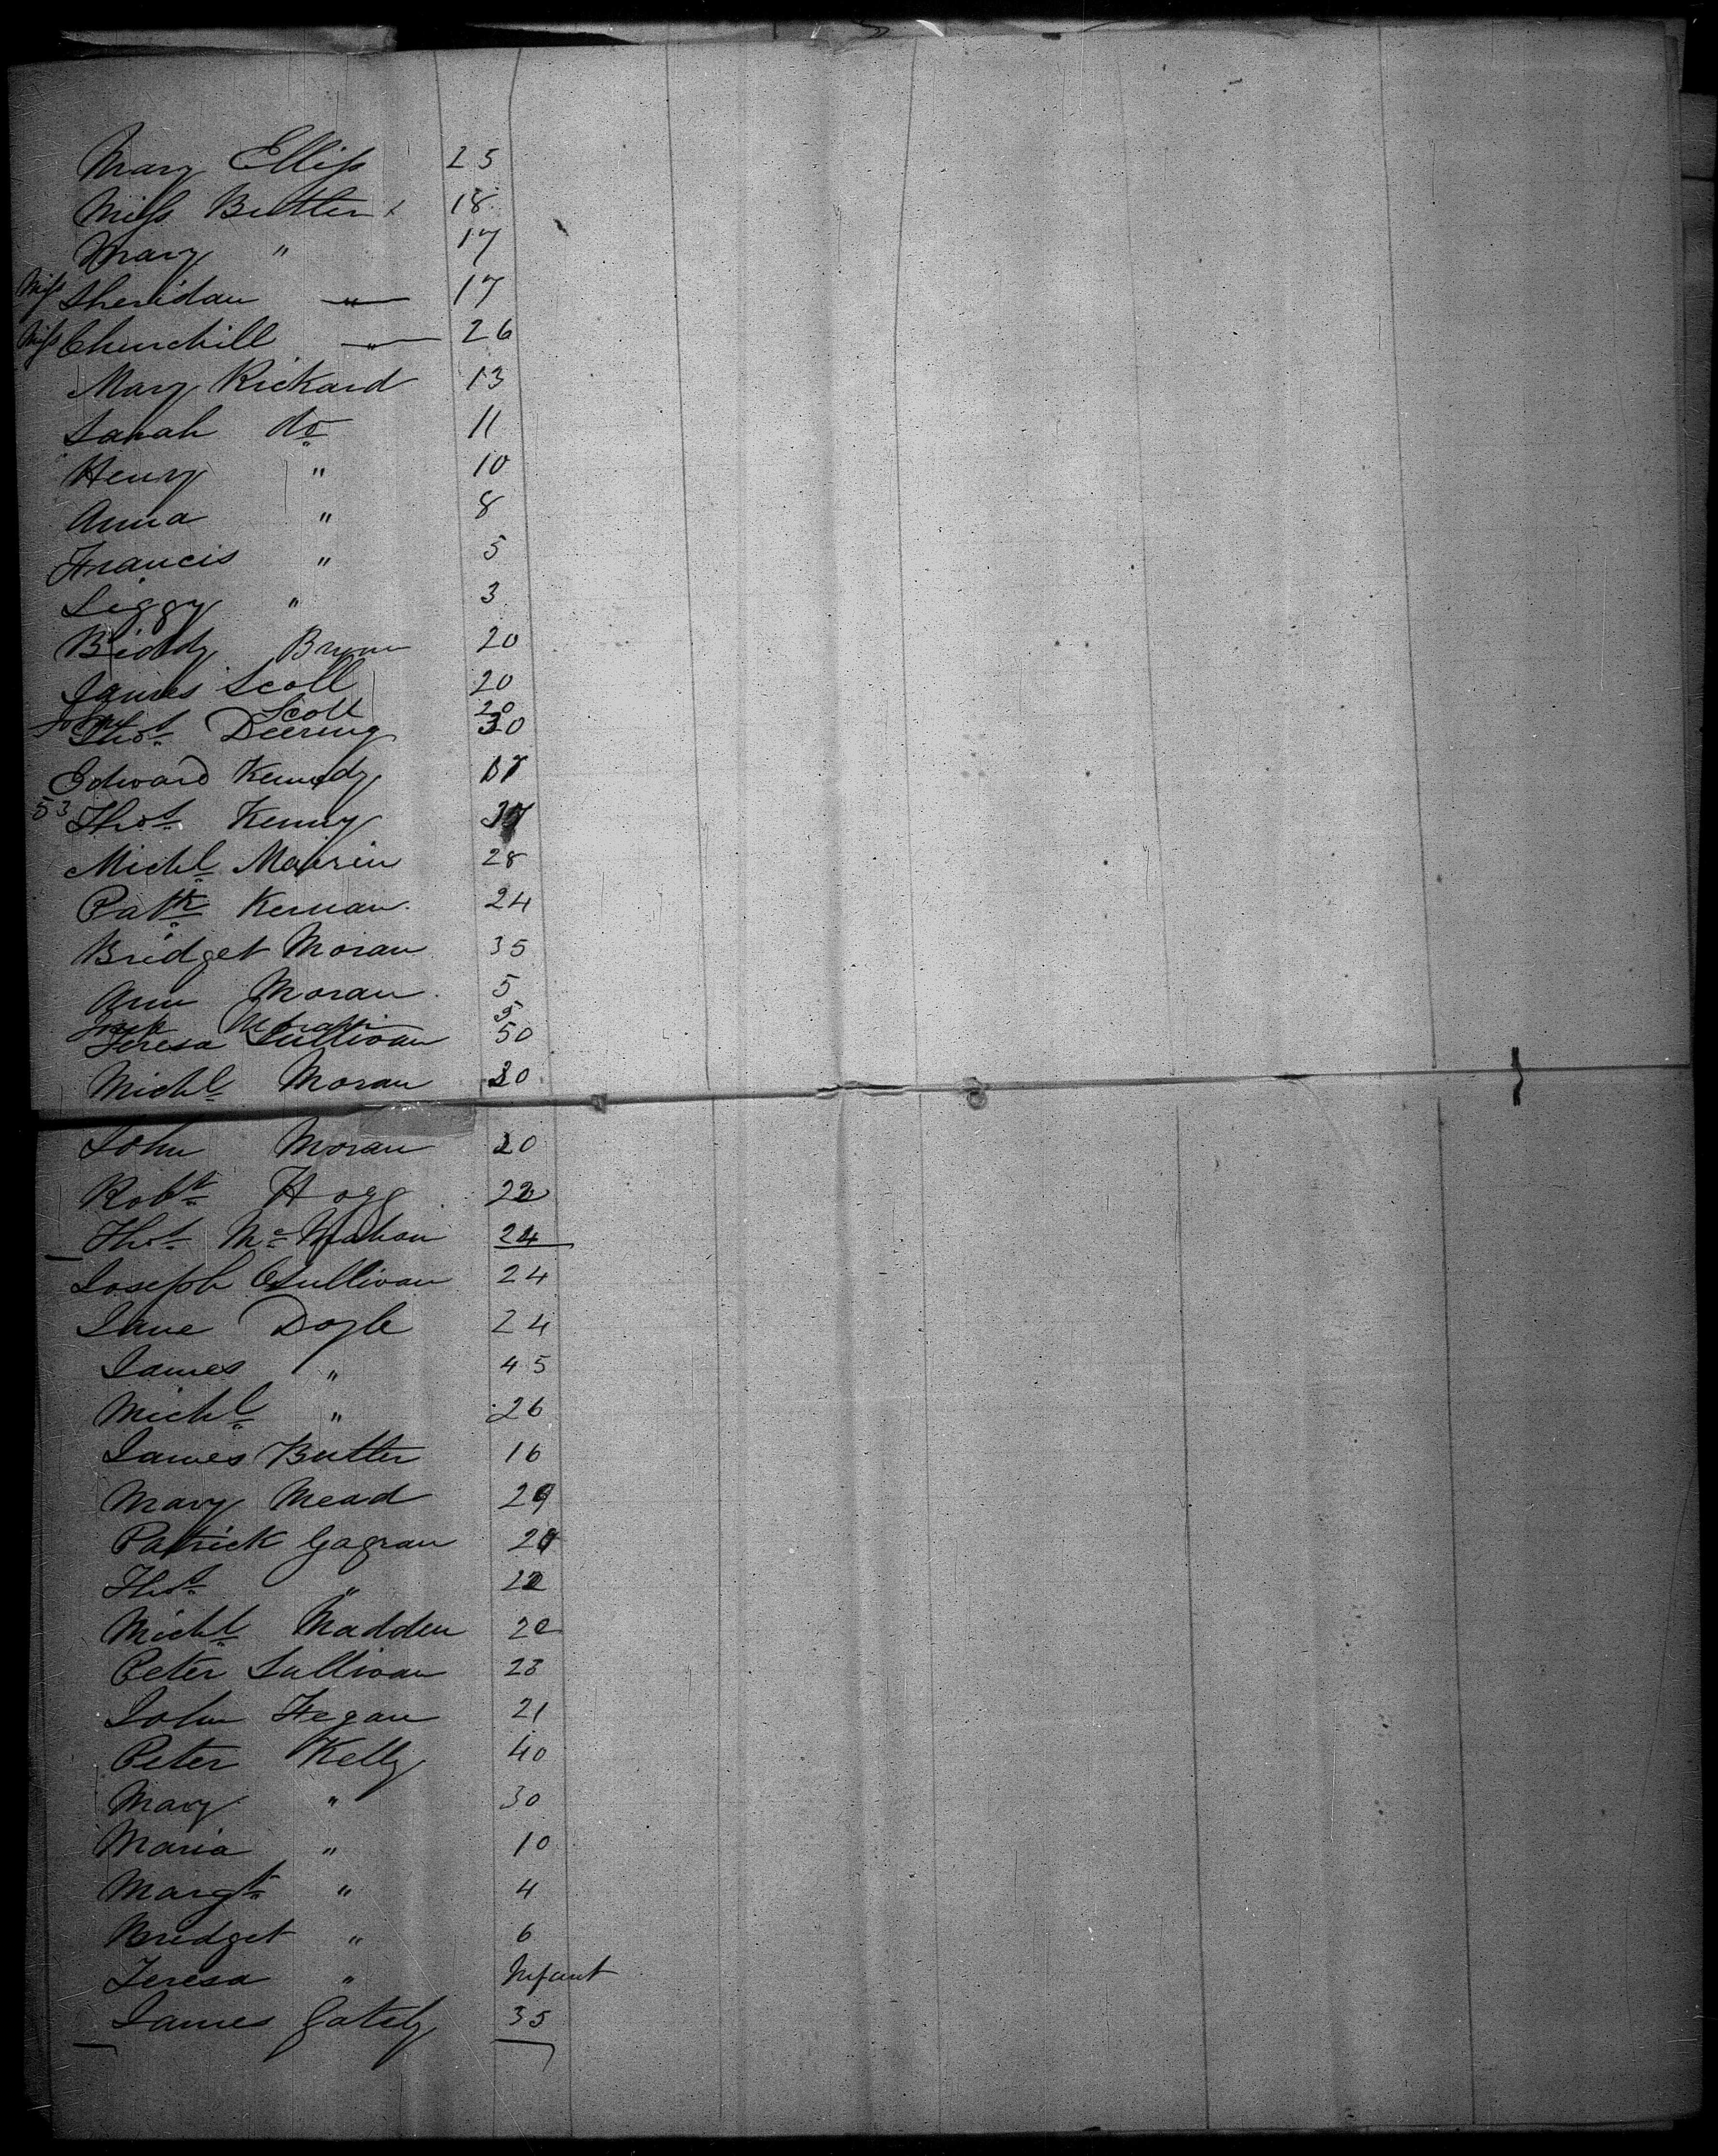 Mary Elliss 25
Miss Butler 18
Mary " 17
Miss Sheridan " 17
Miss Churchill " 26
Mary Rickard 13
Sarah do 11
Henry " 10
Anna " 8
Francis " 5
Liggy " 3
Biddy 20
James Scott 20
John Scott 20
Thos Deering 30
Edward Kennedy 17
53 Thos Kenny
Michl 28
Patk Kernan 24
Bridget Moran 35
Ann Moran 5
Moran 5
Teresa Sullivan 50
Michl Moran 20
John Moran 20
Robt Hogg 22
Thos McMahon 24
Joseph OSullivan 24
Jane Doyle 24
James " 45
Michl " 26
James Butler 16
Mary Mead 29
Patrick Gagran
Thos " 22
Michl Madden 20
Peter Sullivan 23
John Fegan 21
Peter Kelly 40
Mary " 30
Maria " 10
Margt " 4
Bridget " 6
Teresa " Infant
James Gately 35